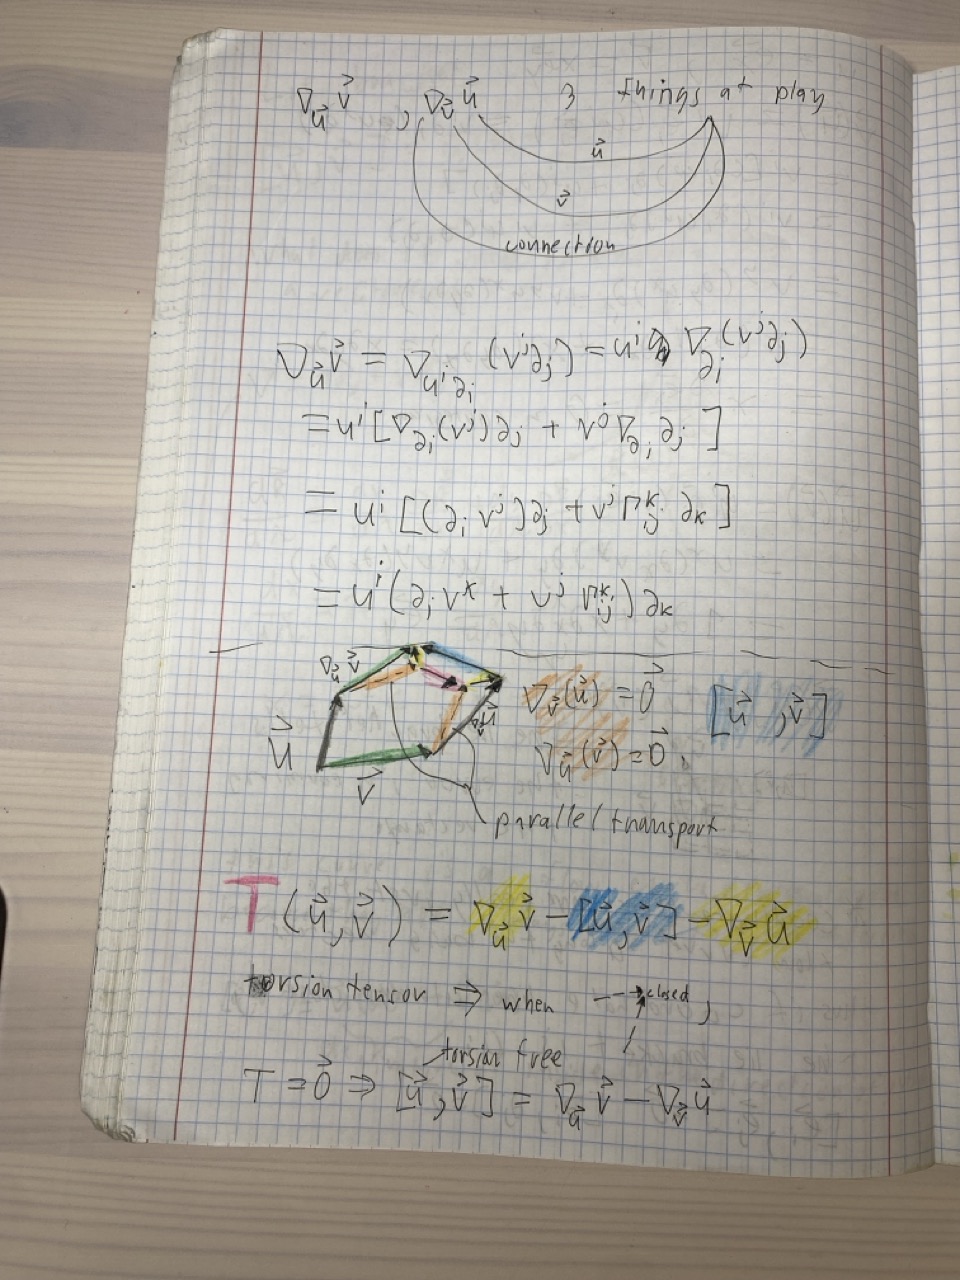 ∇_u⃗ v⃗ , ∇_v⃗ u⃗ 3 things at play
u⃗
v⃗
connection
∇_u⃗ v⃗ = ∇_{u^i ∂_i} (v^j ∂_j) = u^i ∇_{∂_i} (v^j ∂_j)
= u^i [∇_{∂_i} (v^j) ∂_j + v^j ∇_{∂_i} ∂_j ]
= u^i [(∂_i v^j) ∂_j + v^j Γ^k_{ij} ∂_k ]
= u^i (∂_i v^k + v^j Γ^k_{ij}) ∂_k
∇_u⃗ v⃗
∇_v⃗ (u⃗) = 0⃗ [u⃗ , v⃗]
u⃗ ∇_v⃗ u⃗
∇_u⃗ (v⃗) = 0⃗
v⃗
parallel transport
T (u⃗, v⃗) = ∇_u⃗ v⃗ - [u⃗, v⃗] - ∇_v⃗ u⃗
torsion tensor ⇒ when closed,
torsion free
T = 0⃗ ⇒ [u⃗, v⃗] = ∇_u⃗ v⃗ - ∇_v⃗ u⃗